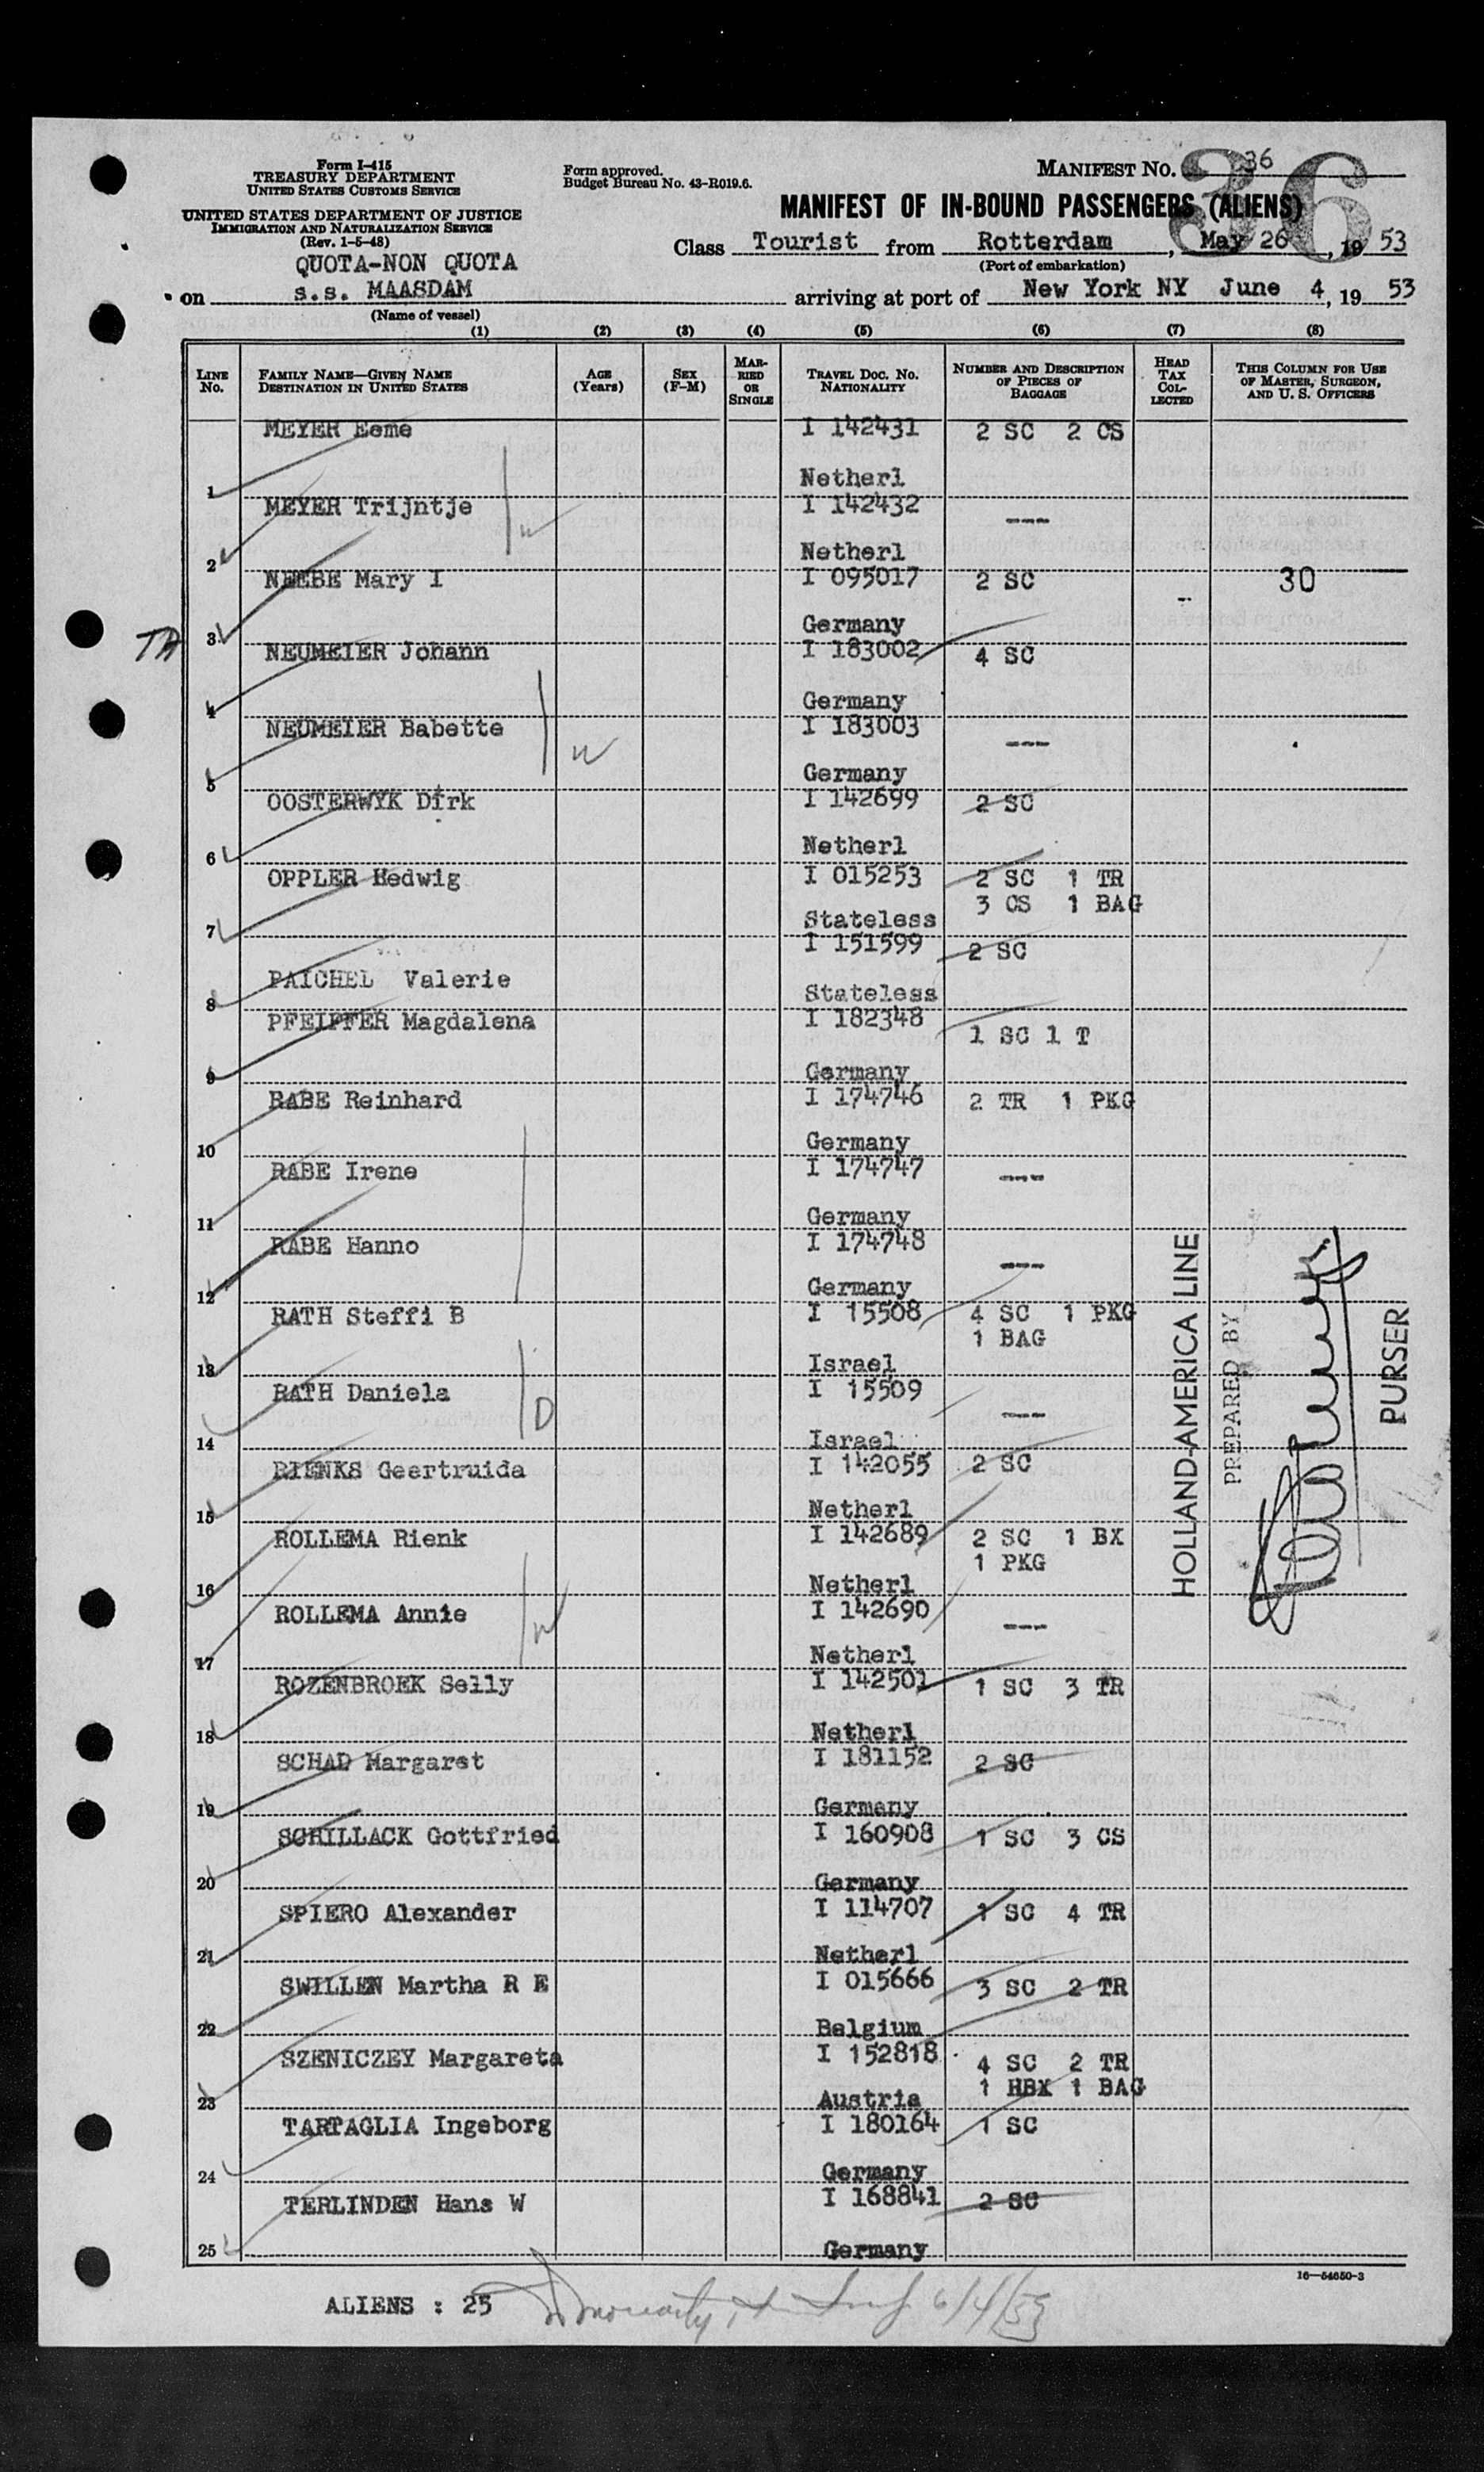 Form I-415
TREASURY DEPARTMENT
UNITED STATES CUSTOMS SERVICE
UNITED STATES DEPARTMENT OF JUSTICE
IMMIGRATION AND NATURALIZATION SERVICE
(Rev. 1-5-48)
QUOTA-NON QUOTA
Form approved.
Budget Bureau No. 43-R019.6.
MANIFEST NO. 36
36
MANIFEST OF IN-BOUND PASSENGERS (ALIENS)
Class Tourist from Rotterdam, May 26, 19 53
(Port of embarkation)
on s.s. MAASDAM arriving at port of New York NY June 4, 19 53
(Name of vessel)
(1) (2) (3) (4) (5) (6) (7) (8)
LINE No. FAMILY NAME—GIVEN NAME DESTINATION IN UNITED STATES AGE (Years) SEX (F-M) MARRIED OR SINGLE TRAVEL DOC. NO. NATIONALITY NUMBER AND DESCRIPTION OF PIECES OF BAGGAGE HEAD TAX COLLECTED THIS COLUMN FOR USE OF MASTER, SURGEON, AND U. S. OFFICERS
MEYER Eeme I 142431 2 SC 2 CS
1 Netherl
MEYER Trijntje W I 142432 ---
2 Netherl
NEEBE Mary I I 095017 2 SC 30
3 Germany
NEUMEIER Johann I 183002 4 SC
4 Germany
NEUMEIER Babette W I 183003 ---
5 Germany
OOSTERWYK Dirk I 142699 2 SC
6 Netherl
OPPLER Hedwig I 015253 2 SC 1 TR
3 CS 1 BAG
7 Stateless
PAICHEL Valerie I 151599 2 SC
8 Stateless
PFEIFFER Magdalena I 182348 1 SC 1 T
9 Germany
RABE Reinhard I 174746 2 TR 1 PKG
10 Germany
RABE Irene I 174747 ---
11 Germany
RABE Hanno I 174748 ---
12 Germany
RATH Steffi B I 15508 4 SC 1 PKG
1 BAG
13 Israel
RATH Daniela D I 15509 ---
14 Israel
RIENKS Geertruida I 142055 2 SC
15 Netherl
ROLLEMA Rienk I 142689 2 SC 1 BX
1 PKG
16 Netherl
ROLLEMA Annie W I 142690 ---
17 Netherl
ROZENBROEK Selly I 142501 1 SC 3 TR
18 Netherl
SCHAD Margaret I 181152 2 SC
19 Germany
SCHILLACK Gottfried I 160908 1 SC 3 CS
20 Germany
SPIERO Alexander I 114707 1 SC 4 TR
21 Netherl
SWILLEN Martha R E I 015666 3 SC 2 TR
22 Belgium
SZENICZEY Margareta I 152818 4 SC 2 TR
1 HBX 1 BAG
23 Austria
TARTAGLIA Ingeborg I 180164 1 SC
24 Germany
TERLINDEN Hans W I 168841 2 SC
25 Germany
HOLLAND-AMERICA LINE
PREPARED BY
PURSER
16—54650-3
ALIENS : 25
6/4/53